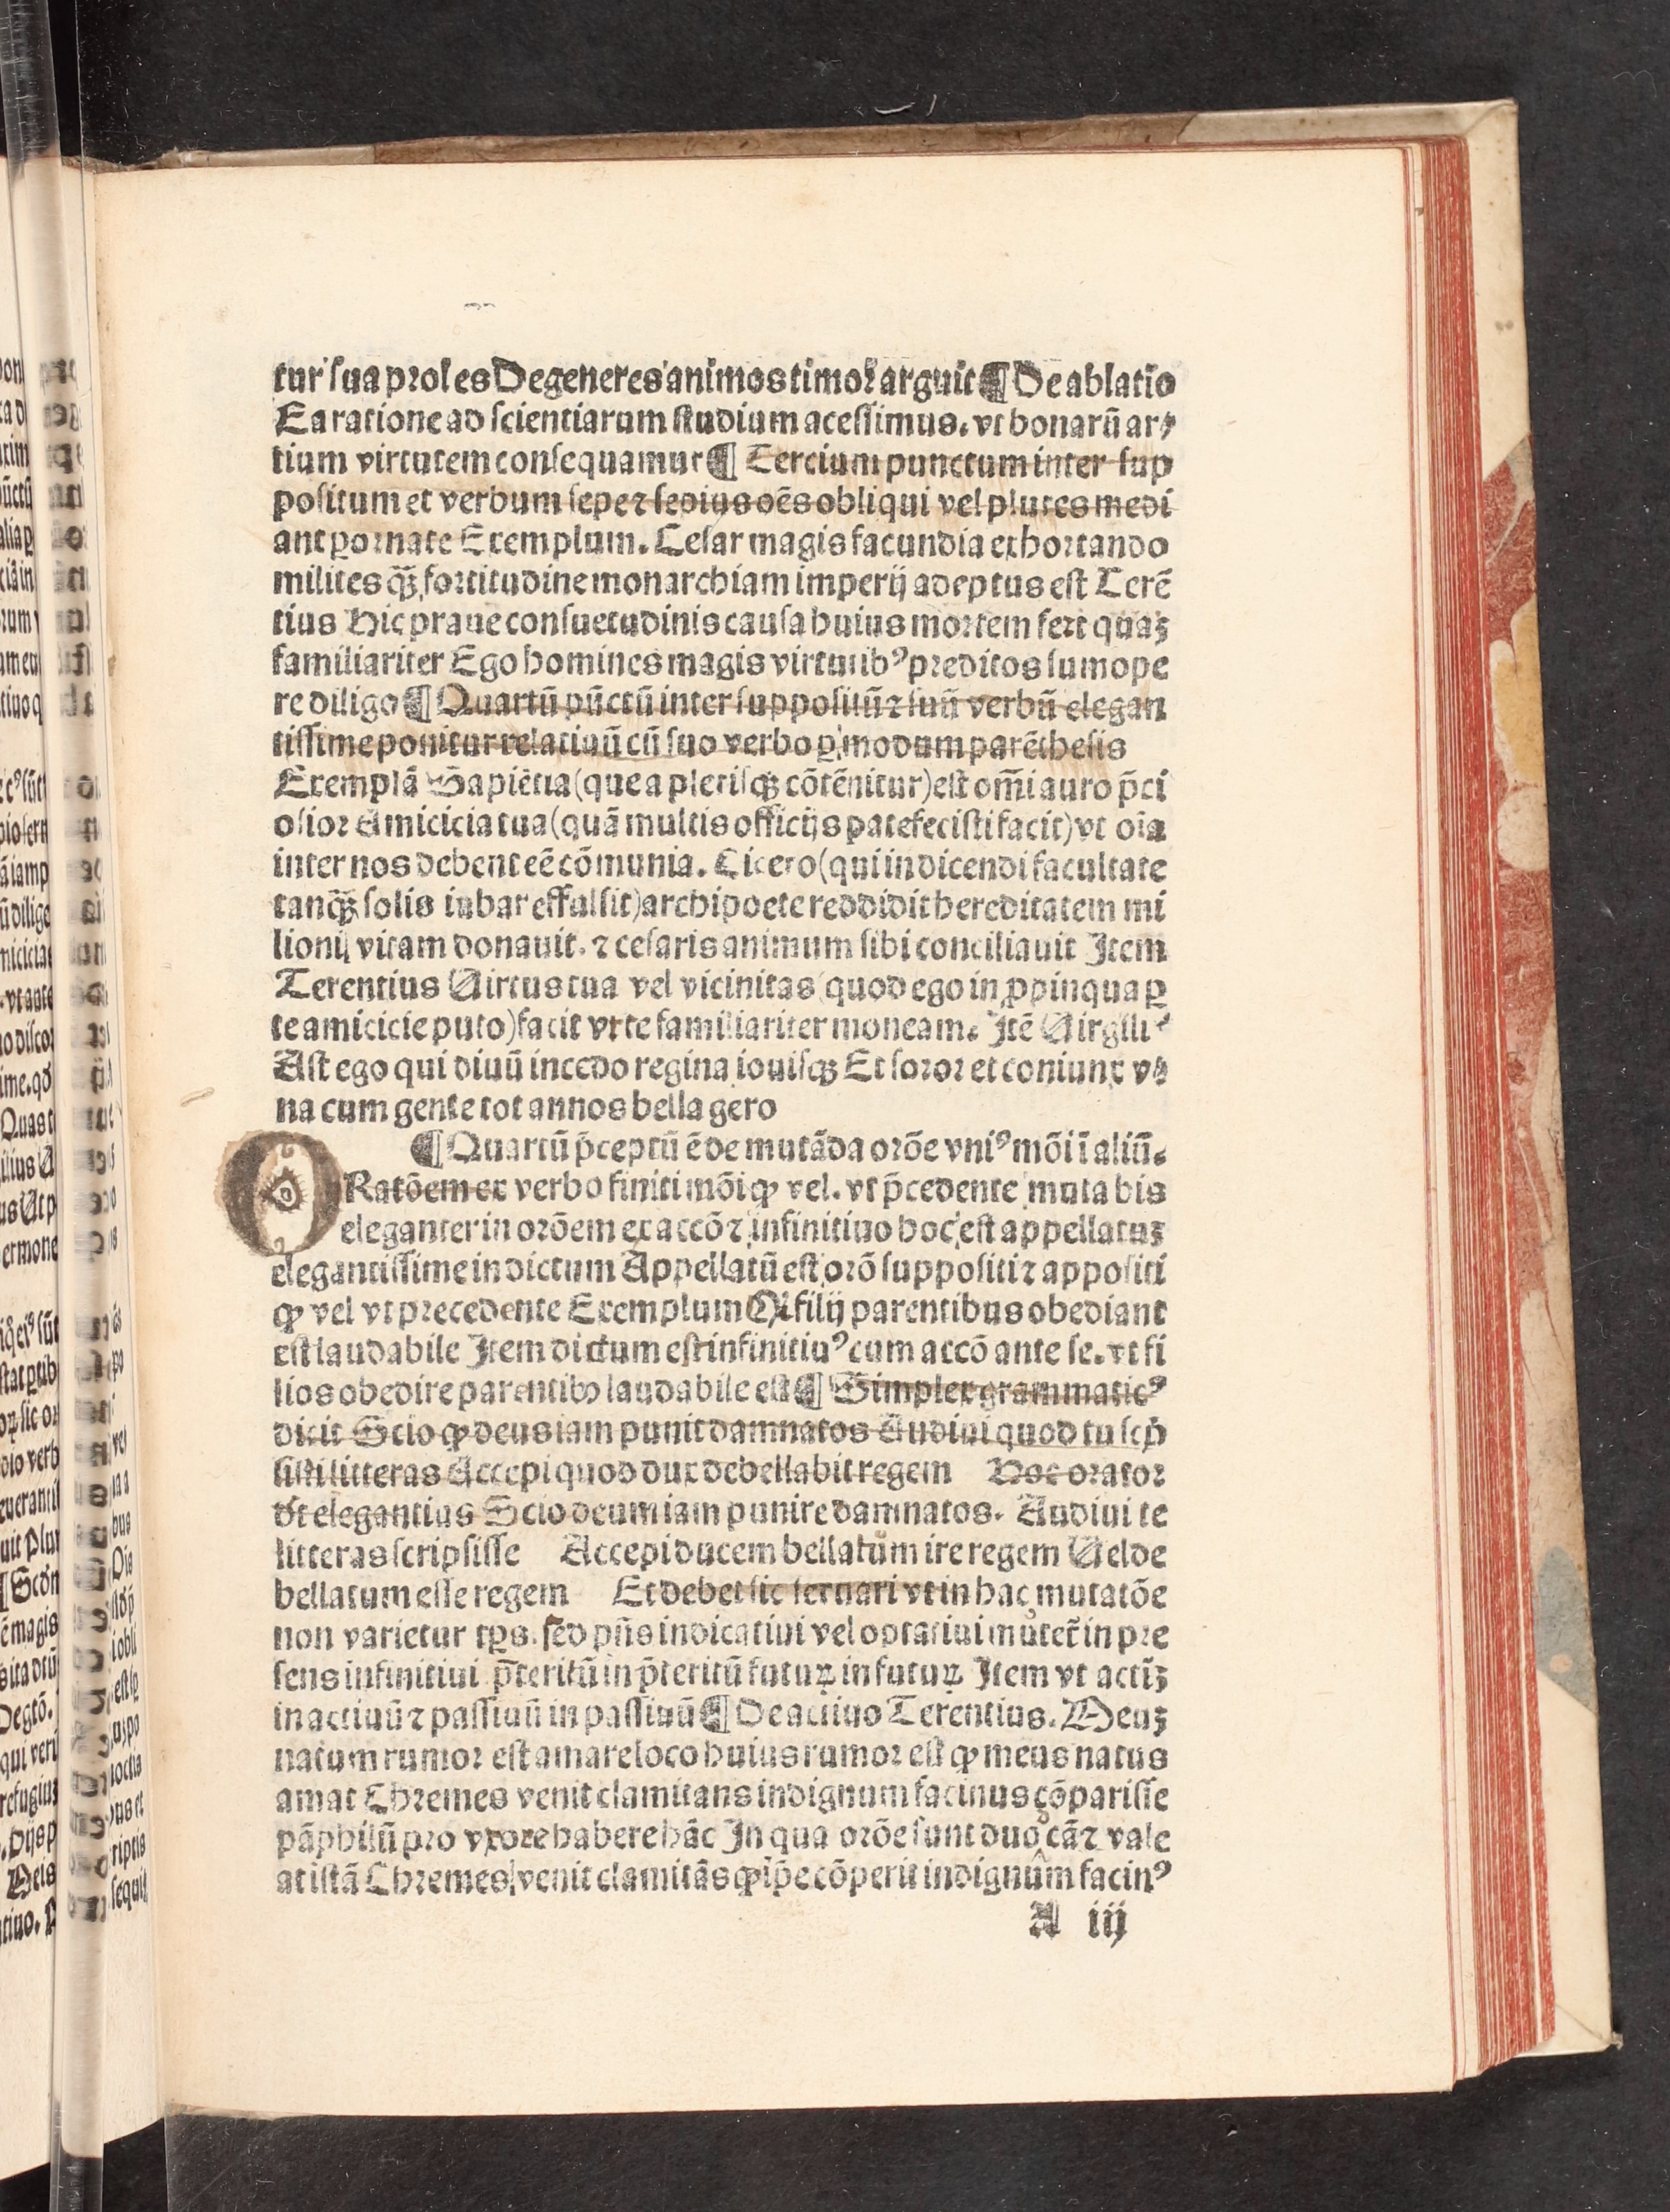 tur sua proles Degeneres animos timor arguit ¶ De ablatio
Ea ratione ad scientiarum studium acessimus. vt bonarū ar⸗
tium virtutem consequamur ¶ Tercium punctum inter sup
positum et verbum sepe ⁊ sepius oēs obliqui vel plures medi
ant ꝑornate Exemplum. Cesar magis facundia exhortando
milites qᷓꝫ fortitudine monarchiam imperij adeptus est Terē
tius Hic praue consuetudinis causa huius mortem fert quaꝫ
familiariter Ego homines magis virtutibꝰ preditos sumope
re diligo ¶ Quartū pūctū inter suppositū ⁊ suū verbū elegan
tissime ponitur relatiuū cū suo verbo ꝑ modum parēthesis
Exemplā Sapiētia (que a plerisqꝫ cōtēnitur) est om̄i auro p̄ci
osior Amicicia tua (quā multis officijs patefecisti facit) vt oīa
inter nos debent eē cōmunia. Cicero (qui in dicendi facultate
tanqᷓꝫ solis iubar effulsit) archipoete reddidit hereditatem mi
lionij vitam donauit. ⁊ cesaris animum sibi conciliauit Item
Terentius Virtus tua vel vicinitas (quod ego in ꝓpinqua ꝑ
te amicicie puto) facit vt te familiariter moneam. Itē Virgiliꝰ
Ast ego qui diuū incedo regina iouisqꝫ Et soror et coniunx v⸗
na cum gente tot annos bella gero
¶ Quartū p̄ceptū ē de mutāda orōe vniꝰ mōi ī aliū.
ORatōem ex verbo finiti mōi ꝙ vel. vt p̄cedente mutabis
eleganter in orōem ex accō ⁊ infinitiuo hoc est appellatuꝫ
elegantissime in dictum Appellatū est orō suppositi ⁊ appositi
ꝙ vel vt precedente Exemplum Ꝙ filij parentibus obediant
est laudabile Item dictum est infinitiuꝰ cum accō ante se. vt fi
lios obedire parentibꝰ laudabile est ¶ Simplex grammaticꝰ
dicit Scio ꝙ deus iam punit damnatos Audiui quod tu scp̄
sisti litteras Accepi quod dux debellabit regem Hoc orator
dt̄ elegantius Scio deum iam punire damnatos. Audiui te
litteras scripsisse Accepi ducem bellatum ire regem Vel de
bellatum esse regem Et debet sic seruari vt in hac mutatōe
non varietur tꝑs. sed pn̄s indicatiui vel optatiui mutet̄ in pre
sens infinitiui p̄teritū in p̄teritū futuꝝ in futuꝝ Item vt actīꝫ
in actiuū ⁊ passiuū in passiuū ¶ De actiuo Terentius. Meuꝫ
natum rumor est amare loco huius rumor est ꝙ meus natus
amat Chremes venit clamitans indignum facinus cōparisse
pāphilū pro vxore habere hāc In qua orōe sunt duo cā ⁊ vale
at istā Chremes venit clamitās ꝙ ip̄e cōperit indignum facinꝰ
A iij